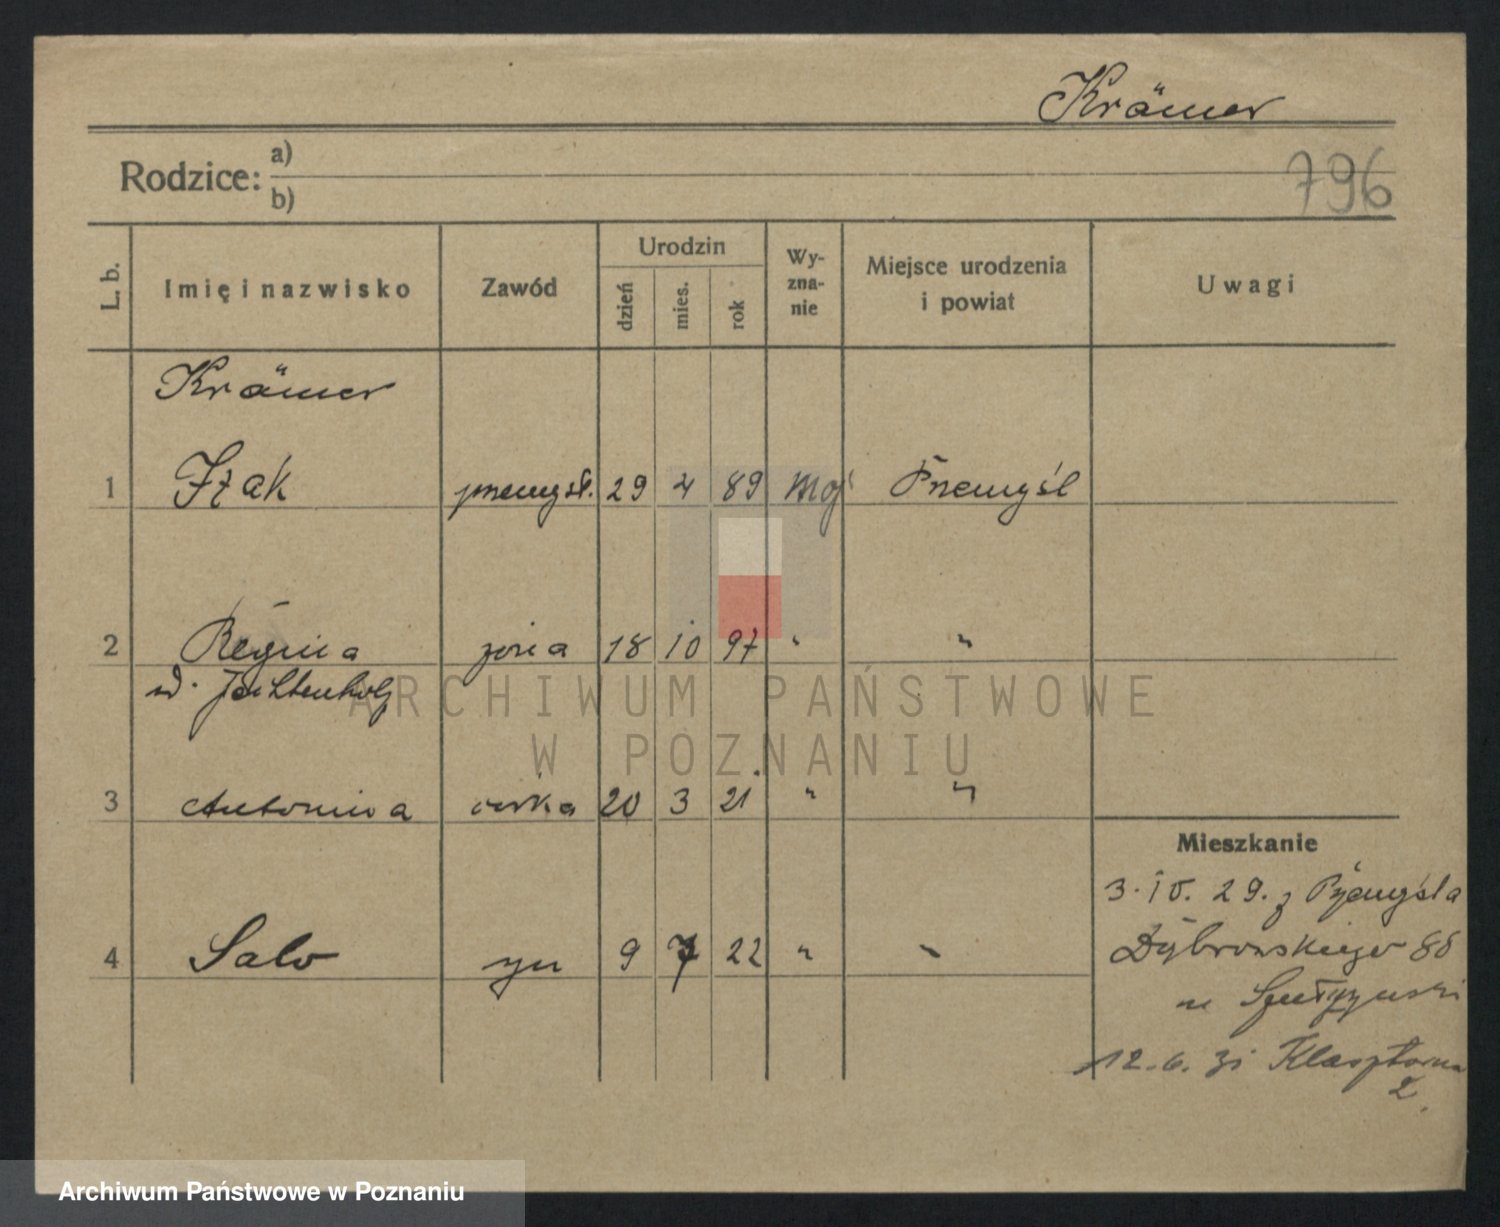 Krämer
Rodzice: a)
b)
796
L. b.
Imię i nazwisko
Zawód
Urodzin
dzień
mies.
rok
Wy-
zna-
nie
Miejsce urodzenia
i powiat
Uwagi
Krämer
1 Izak przemysł. 29 4 89 mojż Przemyśl
2 Regina żona 18 10 97 " "
3 Antonina córka 20 3 21 " "
4 Salo syn 9 7 22 " "
Mieszkanie
3. 10. 29. z Przemyśla
Dąbrowskiego 88
12. 6. 31 Klasztorna
2.
ARCHIWUM PAŃSTWOWE
W POZNANIU
Archiwum Państwowe w Poznaniu